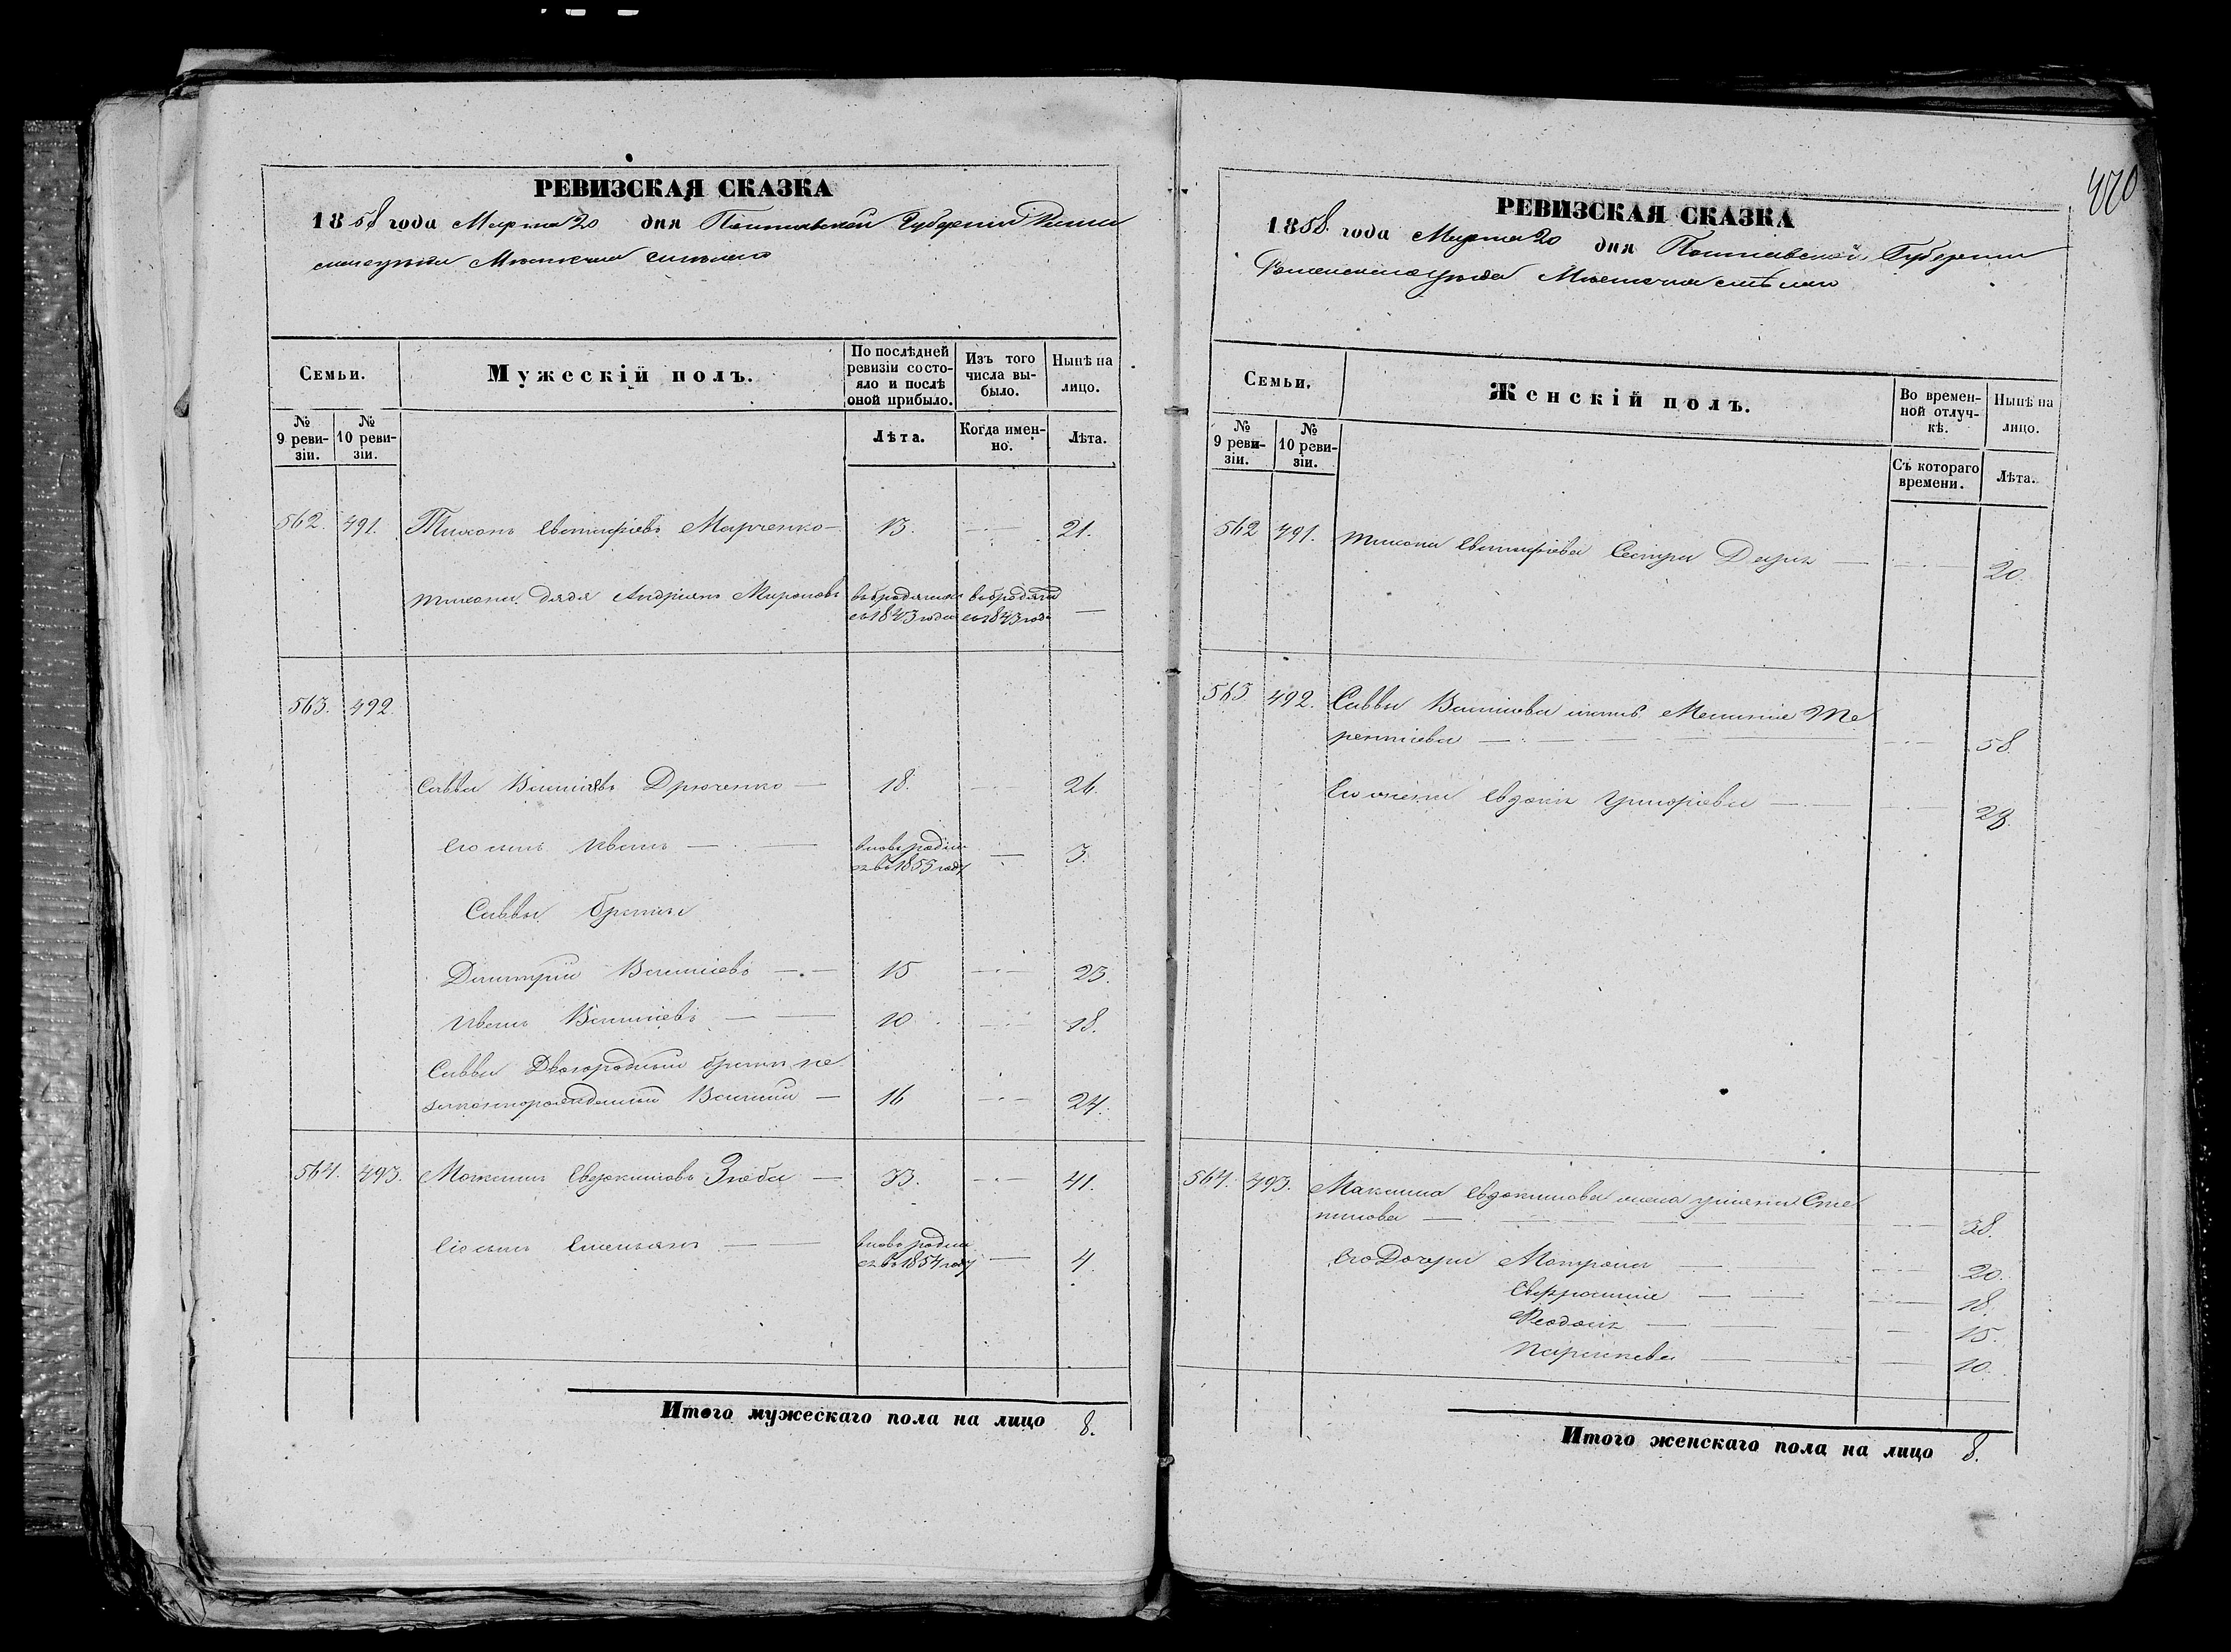 РЕВИЗСКАЯ СКАЗКА
1858 года Марта 20 дня Полтавской Губернии Роме
Местечка Смелаго
Семьи.
Мужескій полъ.
По послѣдней ревизіи состо-
яло и послѣ
оной прибыло.
Изъ того
числа вы-
было.
Нынѣ на
лицо.
№
9 реви-
зіи.
№
10 реви-
зіи.
Лѣта.
Когда имен-
но.
Лѣта.
562. 491. Тихонъ Евстафіевъ Марченко 13 21.
Тихона дядя Андріанъ Мироновъ
съ 1843 года съ 1843 года
563. 492.
Савва Дрюченко 18. 26.
Его сынъ Иванъ вновь родил-
ся въ 1855 году 3.
Саввы братья
Дмитрий 15 23.
Иванъ 10 18.
Саввы Двоюродный братъ не
законнорожденный 16 24.
564. 493. Максимъ Евдокимовъ Зюба 33. 41.
Его сынъ Емельянъ вновь родил
ся въ 1854 году 4.
Итого мужескаго пола на лицо 8.
470
РЕВИЗСКАЯ СКАЗКА
1858. года Марта 20 дня Полтавской Губернии
Роменскаго уезда Местечка Смѣлаго
Семьи.
Женскій полъ.
Во времен-
ной отлуч-
кѣ.
Нынѣ на
лицо.
№
9 реви-
зіи.
№
10 реви-
зіи.
Съ котораго
времени.
Лѣта.
562 491. Тихона Евстафіева Сестра 20.
563 492. Саввы мать Меланія Те
рентіева 58.
Его жена Евдокія Григоріева 28.
564. 493. Максима Евдокимова жена Сте
панова 38.
Его Дочери Матрона 20.
Евфросинія 18.
Феодосія 15.
Параскева 10.
Итого женскаго пола на лицо 8.